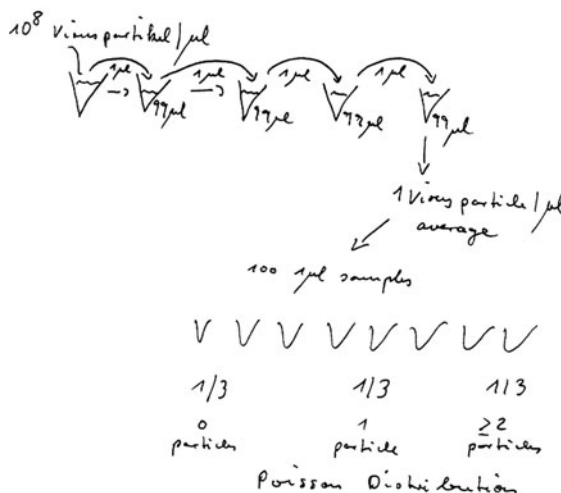 10⁸ Viruspartikel/µl
1µl 1µl 1µl 1µl
99µl 99µl 99µl 99µl
1 Virus particle/µl
average
100 1µl samples
1/3 1/3 1/3
0 1 ≥2
particles particle particles
Poisson Distribution